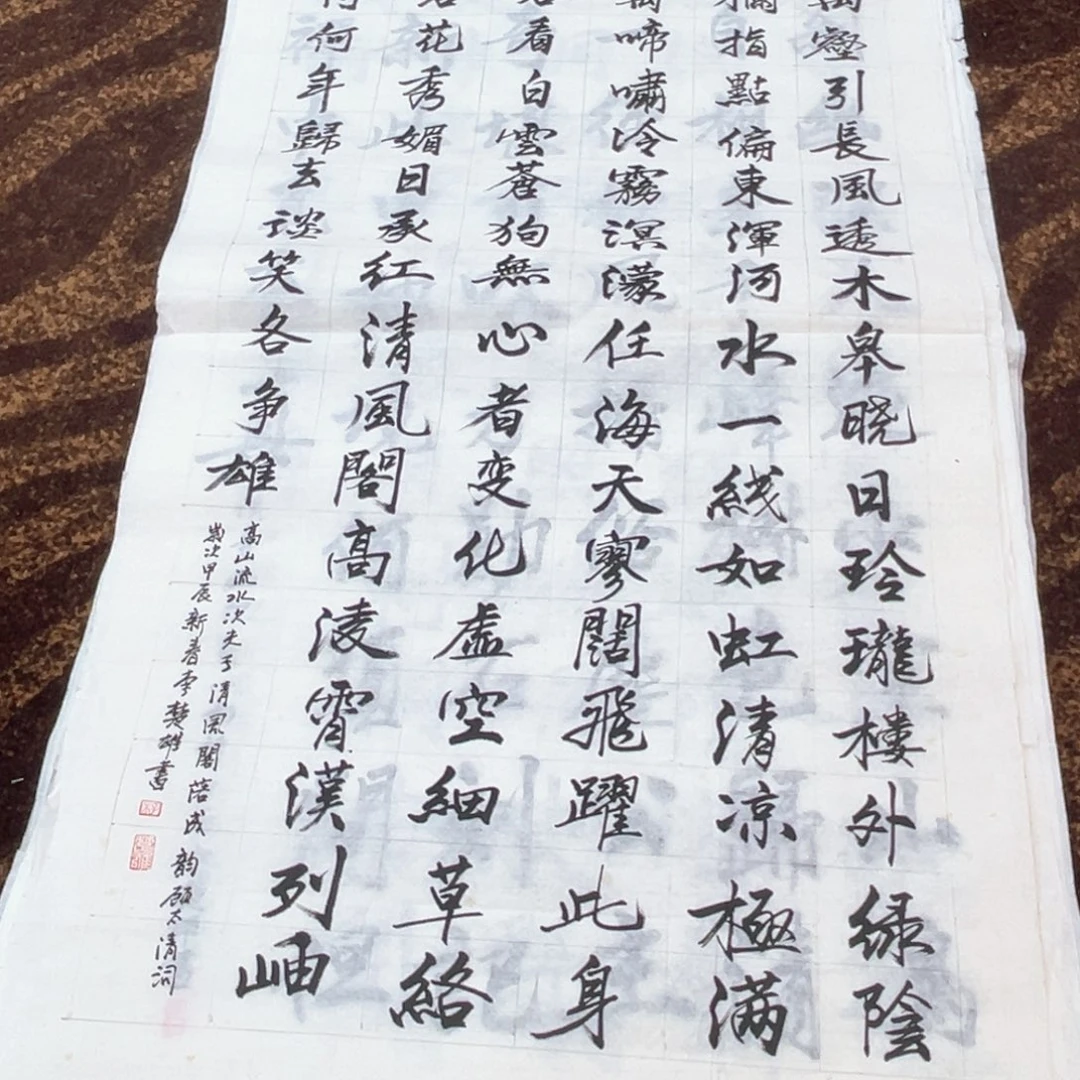 壑引長風透木皋晓日玲瓏樓外緑陰
指點偏東渾河水一綫如虹清凉極满
啼嘯冷霧溟濛任海天寥闊飛躍此身
看白雲蒼狗無心者变化虚空細草絡
花秀媚日承紅清風閣高凌霄漢列岫
何年歸去談笑各争雄
高山流水次夫子清風閣落成韵顧太清詞
歲次甲辰新春李楚雄書